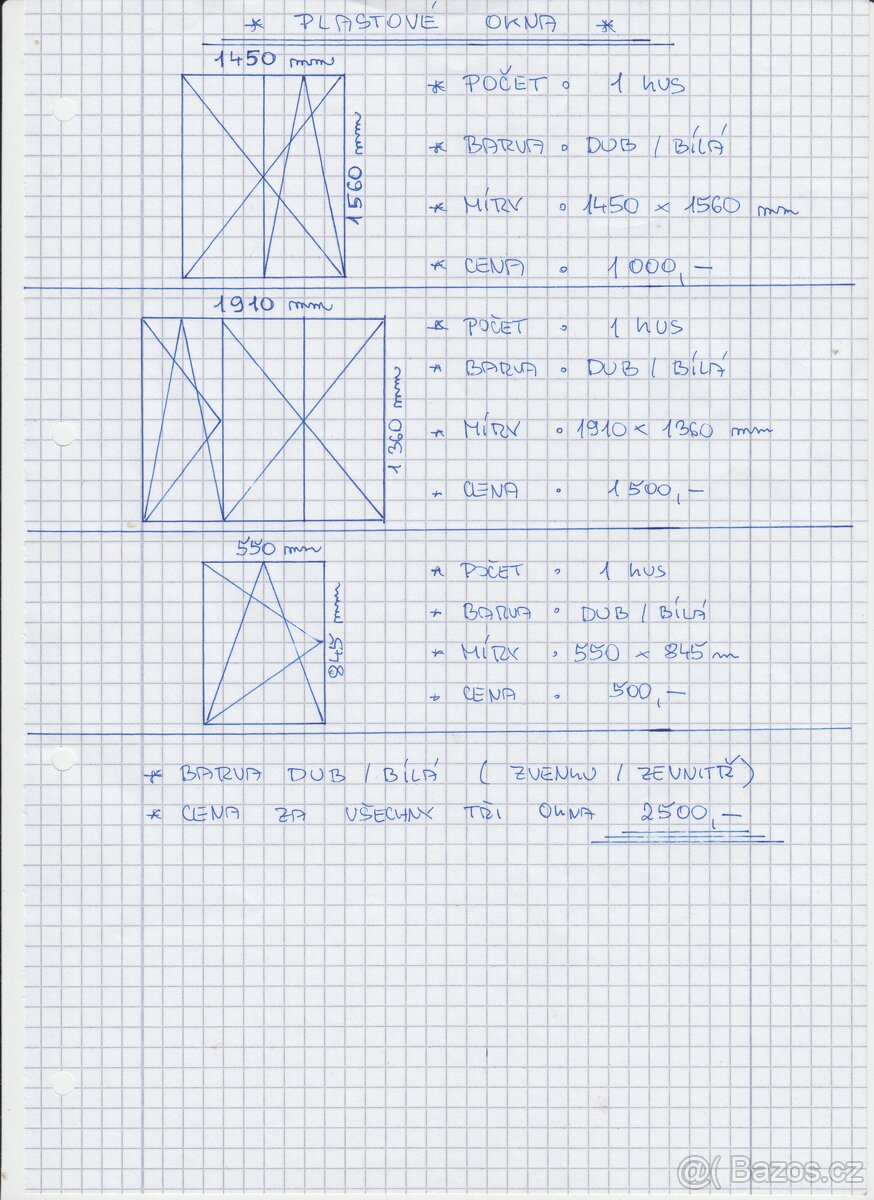 * PLASTOVÉ OKNA *
1450 mm
1560 mm
* POČET : 1 kus
* BARVA : DUB / BÍLÁ
* MÍRY : 1450 x 1560 mm
* CENA : 1 000,-
1910 mm
1360 mm
* POČET : 1 kus
* BARVA : DUB / BÍLÁ
* MÍRY : 1910 x 1360 mm
* CENA : 1 500,-
550 mm
845 mm
* POČET : 1 kus
* BARVA : DUB / BÍLÁ
* MÍRY : 550 x 845 m
* CENA : 500,-
* BARVA DUB / BÍLÁ ( ZVENKU / ZEVNITŘ )
* CENA ZA VŠECHNY TŘI OKNA 2500,-
@( Bazos.cz